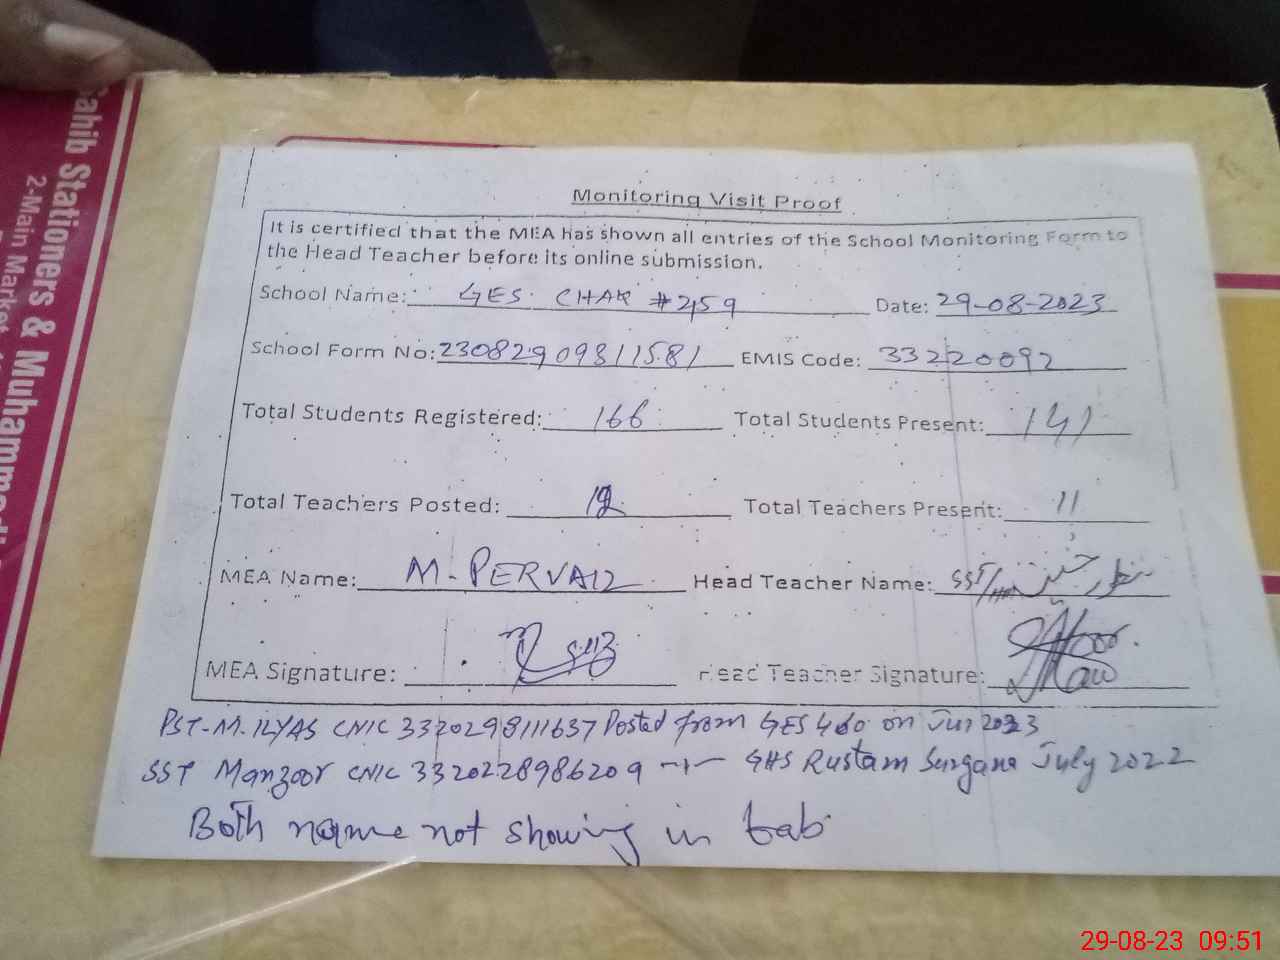 Sahib Stationers & Muhammad
2-Main Market
Monitoring Visit Proof
It is certified that the MEA has shown all entries of the School Monitoring Form to
the Head Teacher before its online submission.
School Name: GES CHAK #459 Date: 29-08-2023
School Form No: 23082909811581 EMIS Code: 33220092
Total Students Registered: 166 Total Students Present: 141
Total Teachers Posted: 12 Total Teachers Present: 11
MEA Name: M. PERVAIZ Head Teacher Name: SST/ منظور حسین
MEA Signature: Head Teacher Signature:
PST-M. ILYAS CNIC 3320298111637 Posted from GES 460 on Jun 2023
SST Manzoor CNIC 3320228986209 -"- GHS Rustam Surgana July 2022
Both name not showing in tab
29-08-23 09:51